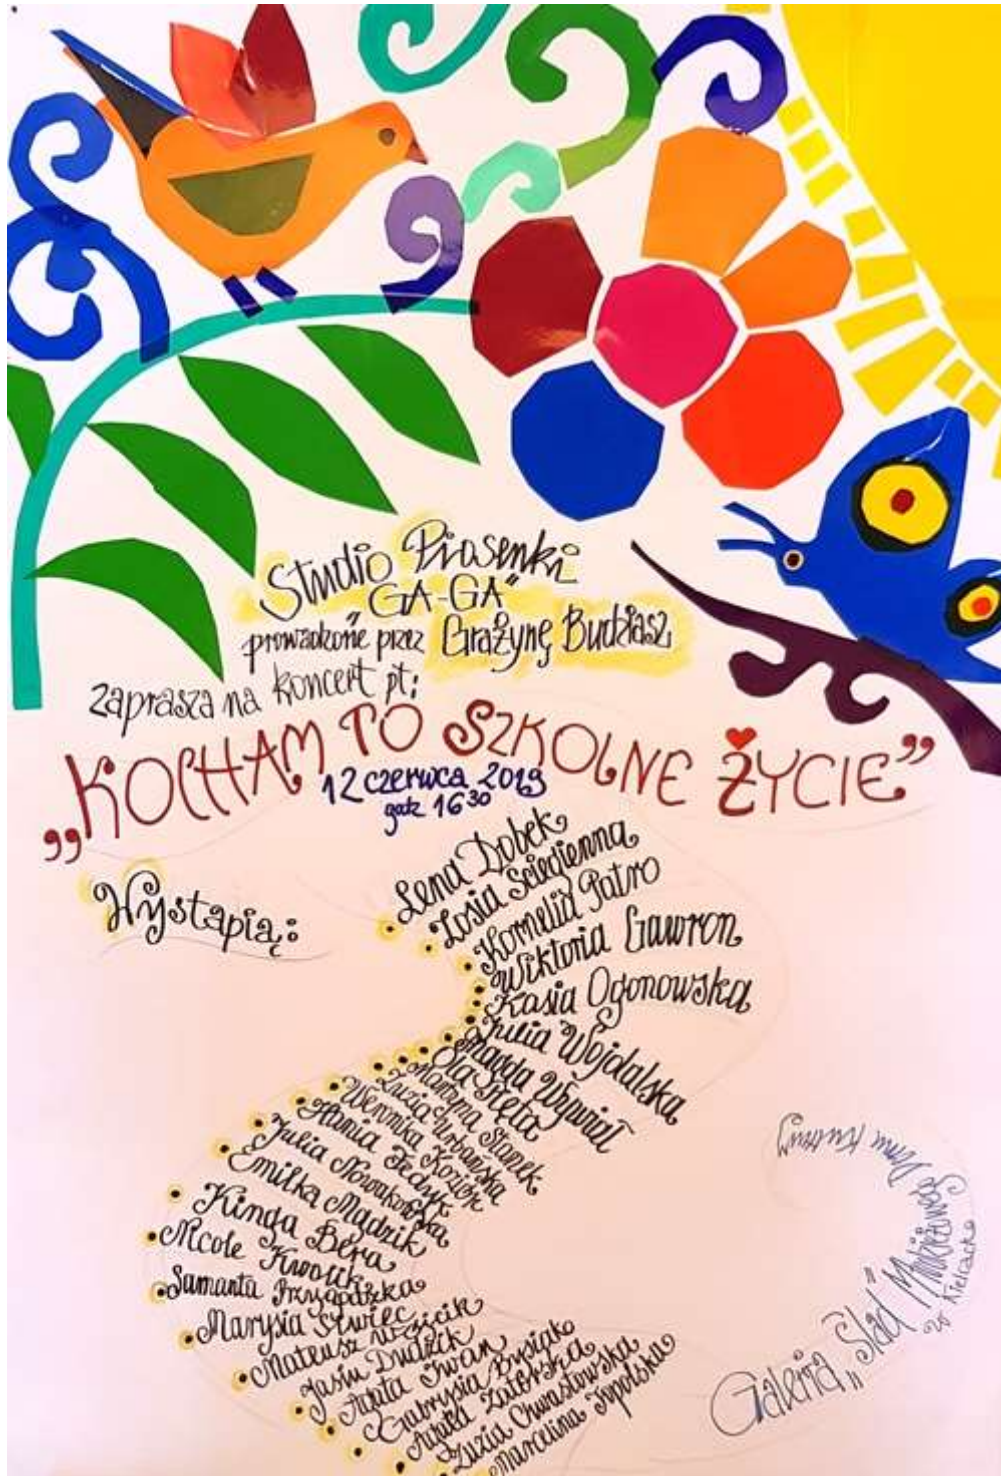 Studio Piosenki
"GA-GA"
prowadzone przez Grażynę Budziasz
zaprasza na koncert pt:
„KOCHAM TO SZKOLNE ŻYCIE”
12 czerwca 2019
godz 16 30
Wystąpią:
Lena Dobek
Zosia Ściegienna
Kornelia Patro
Wiktoria Gawron
Kasia Ogonowska
Julia Wojdalska
Magda Wywiał
Ola Pięta
Martyna Stanek
Zuzia Urbańska
Weronika Kozioł
Hania Fedyk
Julia Nowakowska
Emilka Mądzik
Kinga Bera
Nicole Kwolik
Samanta Przygodzka
Marysia Siwiec
Mateusz Wójcik
Jasiu Dudzik
Agata Iwan
Gabrysia Bysiak
Agata Zatorska
Zuzia Chwastowska
Marcelina Topolska
Galeria „Ślad” Młodzieżowego Domu Kultury
w Kielcach